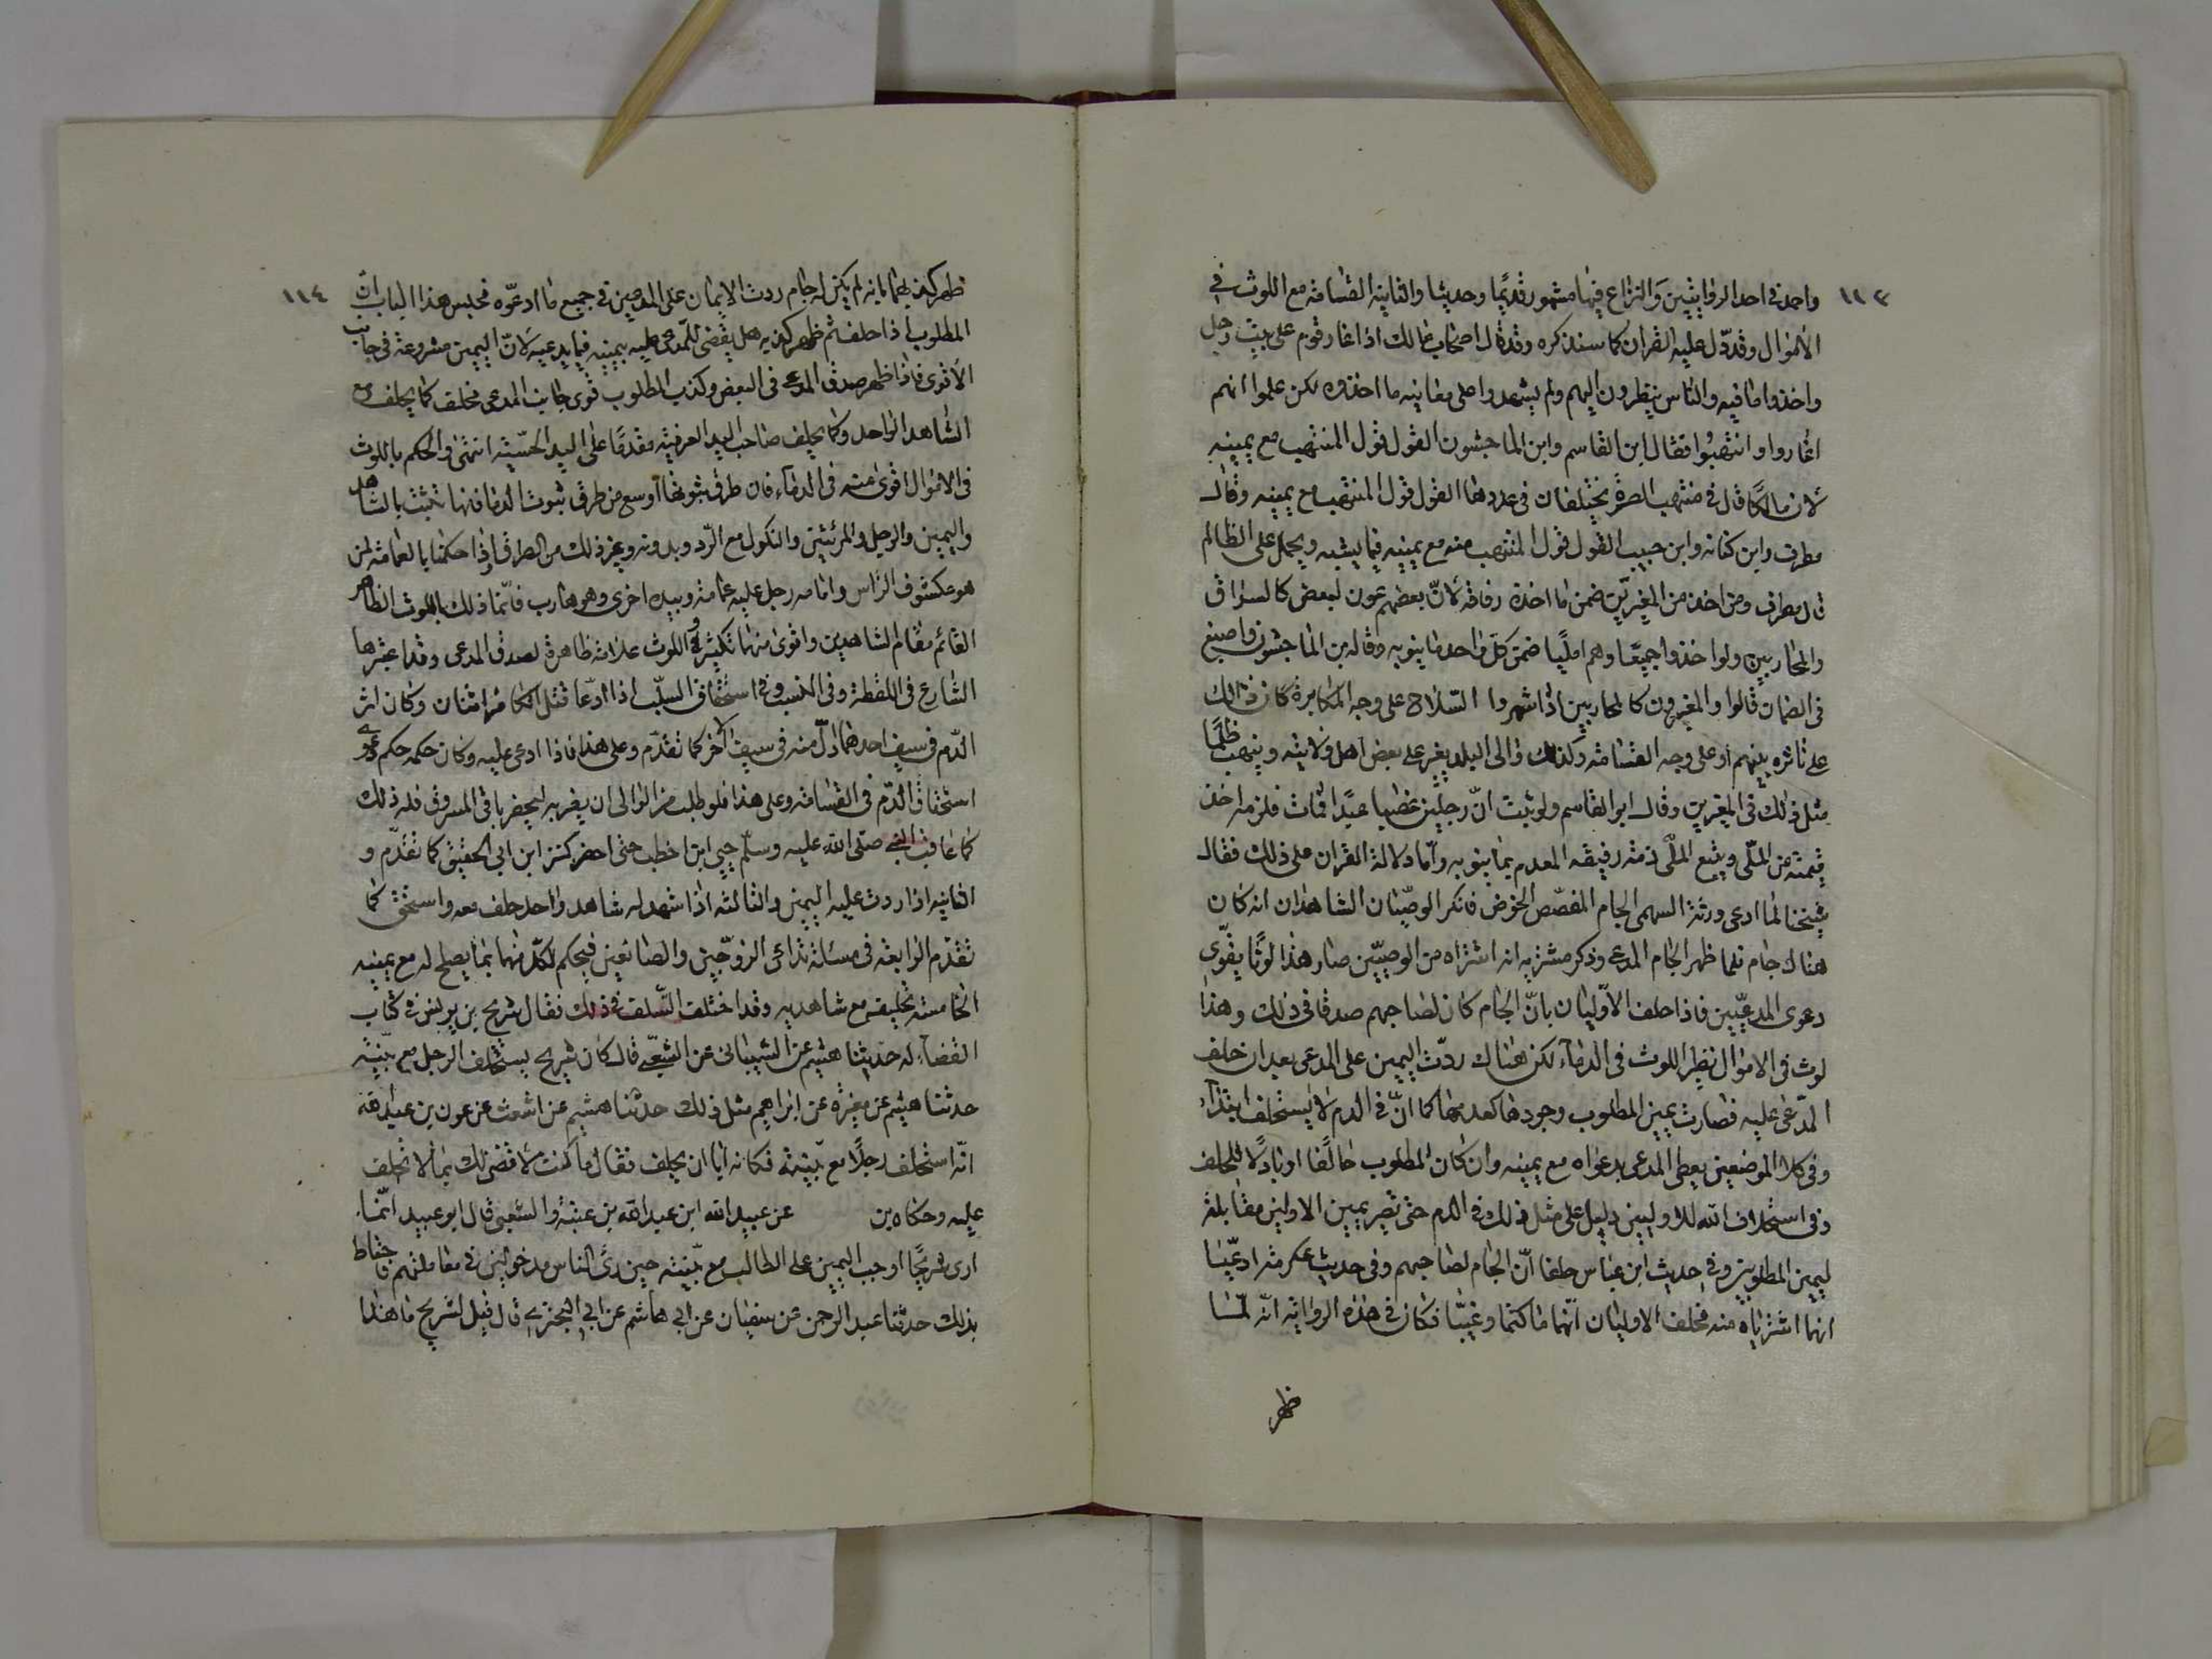 ١١٣
واحمد في احد الروايتين والنزاع فيها مشهور قديمًا وحديثا والثانية القسامة مع اللوث في
الأموال وقد دل عليه القران كما سنذكره وقد قال اصحاب مالك اذا اغار قوم على بيت رجل
واخذوا ما فيه والناس ينظرون اليهم ولم يشهدوا على معاينه ما اخذوه لكن علموا انهم
اغاروا وانتهبوا فقال ابن القاسم وابن الماجشون القول قول المنتهب مع يمينه
لأن مالكًا قال في منتهب الصرة يختلفان في عددها القول قول المنتهب مع يمينه وقال
مطرف وابن كنانه وابن حبيب القول قول المنتهب منه مع يمينه فيما يشبه ويحمل على الظالم
قال مطرف ومن اخذ من المغيرين ضمن ما اخذه رفاقه لأنّ بعضهم عون لبعض كالسراق
والمحاربين ولو اخذوا جميعًا وهم امليًا ضمن كل واحد ما ينوبه وقاله ابن الماجشون واصبغ
في الضمان قالوا والمغيرون كالمحاربين اذا شهروا السلاح على وجه المكابرة كان ذلك
على ثائرة بينهم او على وجه الفساد وكذلك والى البلد يغير على بعض اهل ولايته وينهب ظلمًا
مثل ذلك في المغيرين وقال ابن القاسم ولو ثبت انّ رجلين غصبا عبدًا فمات فلزم اخذ
قيمته من الملّى ويتبع الملّى ذمة رفيقه المعدم بما ينوبه واما دلالة القران على ذلك فقال
شيخنا لما ادعى ورثة السهمى الجام المفضّض المخوّص فانكر الوصيّان الشاهدان انه كان
هناك جام فلما ظهر الجام المدعى وذكر مشتريه انه اشتراه من الوصيّين صار هذا لوثًا يقوّى
دعوى المدعيين فاذا حلف الأوليان بانّ الجام كان لصاحبهم صدقا في ذلك وهذا
لوث في الاموال نظير اللوث في الدماء لكن هناك ردّت اليمين على المدعى بعد ان حلف
المدّعى عليه فصارت يمين المطلوب وجودها كعدمها كما انّ في الدم لا يستحلف ابتداءً
وفي كلا الموضعين يعطى المدعى بدعواه مع يمينه وان كان المطلوب حالفًا او باذلًا للحلف
وفي استحلاف الله للاوليين دليل على مثل ذلك في الدم حتى تصير يمين الاولين مقابلة
ليمين المطلوبين وفي حديث ابن عباس حلفا انّ الجام لصاحبهم وفي حديث عكرمة ادعيا
انهما اشترياه منه فحلف الاوليان انهما ما كتما وغيّبا فكان في هذه الرواية انّه لمّا
ظهر
١١٤
ظهر كذبهما بانه لم يكن له جام ردت الايمان على المدعيين في جميع ما ادعوه فجنس هذا الباب ان
المطلوب اذا حلف ثم ظهر كذبه هل يقضى للمدعى عليه بيمينه فيما يدعيه لانّ اليمين مشروعة في جانب
الأقوى فاذا ظهر صدق المدعى في البعض وكذب المطلوب قوى جانب المدعى فحلف كما يحلف مع
الشاهد الواحد وكما يحلف صاحب اليد العرفية مقدمًا على اليد الحسّية انتهى والحكم باللوث
في الاموال اقوى منه في الدماء فان طرق ثبوتها اوسع من طرق ثبوت الدما فانها تثبت بالشاهد
واليمين والرجل والمرئتين والنكول مع الرّد وبدونه وغير ذلك من الطرق واذا حكمنا بالعمامة لمن
هو مكشوف الرّاس وامامه رجل عليه عمامة وبيده اخرى وهو هارب فانما ذلك باللوث الظاهر
القائم مقام الشاهدين واقوى منهما بكثير واللوث علامة ظاهرة لصدق المدعى وقد اعتبرها
الشارع في اللقطة وفي النسب وفي استحقاق السلب اذا ادّعا قتل الكافر اثنان وكان اثر
الدّم في سيف احدهما ادلّ منه في سيف الآخر كما تقدّم وعلى هذا فاذا ادعى عليه وكان حكمه حكم دعوى
استحقاق الدّم في القسامة وعلى هذا فلو طلب من الوالى ان يضربه ليحضر باقى المسروق فله ذلك
كما عاقب النبي صلى الله عليه وسلم حيى ابن اخطب حتى احضر كنز ابن ابي الحقيق كما تقدّم و
الثانية اذا ردت عليه اليمين والثالثة اذا شهد له شاهد واحد حلف معه واستحق كما
تقدّم الرابعة في مسئلة تداعى الزوجين والصانعين فيحكم لكلّ منهما بما يصلح له مع يمينه
الخامسة تحليفه مع شاهديه وقد اختلف السلف في ذلك فقال شريح بن يونس في كتاب
القضاء له حدثنا هشيم عن الشيبانى عن الشعبي قال كان شريح يستحلف الرجل مع بينته
حدثنا هشيم عن مغيرة عن ابراهيم مثل ذلك حدثنا هشيم عن اشعث عن عون بن عبد الله
انّه استحلف رجلًا مع بيّنته فكانه ابا ان يحلف فقال ما كنت لأقضي لك بما لا تحلف
عليه وحكاه بن عن عبيد الله ابن عبد الله بن عتبة والشعبي قال ابو عبيد انّما
ارى شريحًا اوجب اليمين على الطالب مع بيّنته حين رأى الناس مدخولين في معاملتهم فاحتاط
بذلك حدّثنا عبد الرحمن عن سفيان عن ابي هاشم عن ابي البختري قال قيل لشريح ما هذا